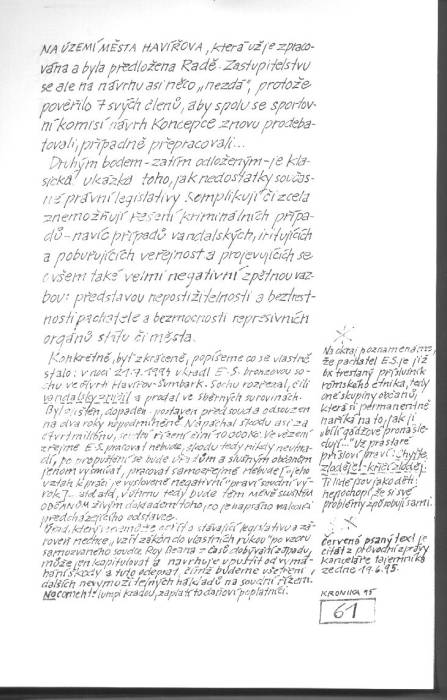 NA ÚZEMÍ MĚSTA HAVÍŘOVA, která už je zpraco-
vána a byla předložena Radě. Zastupitelstvu
se ale na návrhu asi něco „nezdá", protože
pověřilo 7 svých členů, aby spolu se sportov-
ní komisí návrh Koncepce znovu prodeba-
tovali, případně přepracovali...
Druhým bodem - zatím odloženým - je kla-
sická ukázka toho, jak nedostatky součas-
né právní legislativy komplikují či zcela
znemožňují řešení kriminálních přípa-
dů - navíc případů vandalských, iritujících
a pobuřujících veřejnost a projevujících se
ovšem také velmi negativní zpětnou vaz-
bou: představou nepostižitelnosti a beztrest-
nosti pachatele a bezmocnosti represivních
orgánů státu či města.
Konkrétně, byť zkráceně, popíšeme co se vlastně
stalo: v noci 21.7.1994 ukradl E.S. bronzovou so-
chu ve čtvrti Havířov-Šumbark. Sochu rozřezal, čili
vandalsky zničil a prodal ve sběrných surovinách.
Byl zjištěn, dopaden, postaven před soud a odsouzen
na dva roky nepodmíněně. Napáchal škodu asi za
čtvrt milionu, soudní řízení činí 10000 Kč. Ve vězení
zřejmě E.S. pracovat nebude, škodu tedy nikdy neuhra-
dí, po propuštění se bude úřadům a slušným občanům
jenom vysmívat, pracovat samozřejmě nebude („jeho
vztah k práci je vysloveně negativní" praví soudní vý-
rok)... atd atd, v tomu tedy bude
občanům živým dokladem toho, co je napsáno v
předcházejícího odstavce.
Úřad, který se nemůže opřít o stávající legislativu a zá-
roveň nechce, vzít zákon do vlastních rukou "po vzoru
samozvaného soudce Roy Beana z časů dobývání západu,
může jen kapitulovat a navrhuje upustit od vymá-
hání škody a tuto odepsat, čímž budeme ušetřeni
dalších nevymožitelných nákladů na soudní řízení.
No coment! lumpi kradou, zaplatí to daňoví poplatníci.
Na okraj poznamenáme,
že pachatel E.S. je již
6x trestaný příslušník
romského etnika, tedy
oné skupiny občanů,
která si permanentně
naříká na to, jak ji
„bílí gádžové pronásle-
dují"... Ve prastaré
přísloví praví: Chyťte
zloděje - křičí zloděj.
Ti lidé jsou jako děti:
nepochopí, že si své
problémy způsobují sami.
červeně psaný text je
citát z původní zprávy
kanceláře tajemníka
ze dne 19.6.95.
KRONIKA 95
61